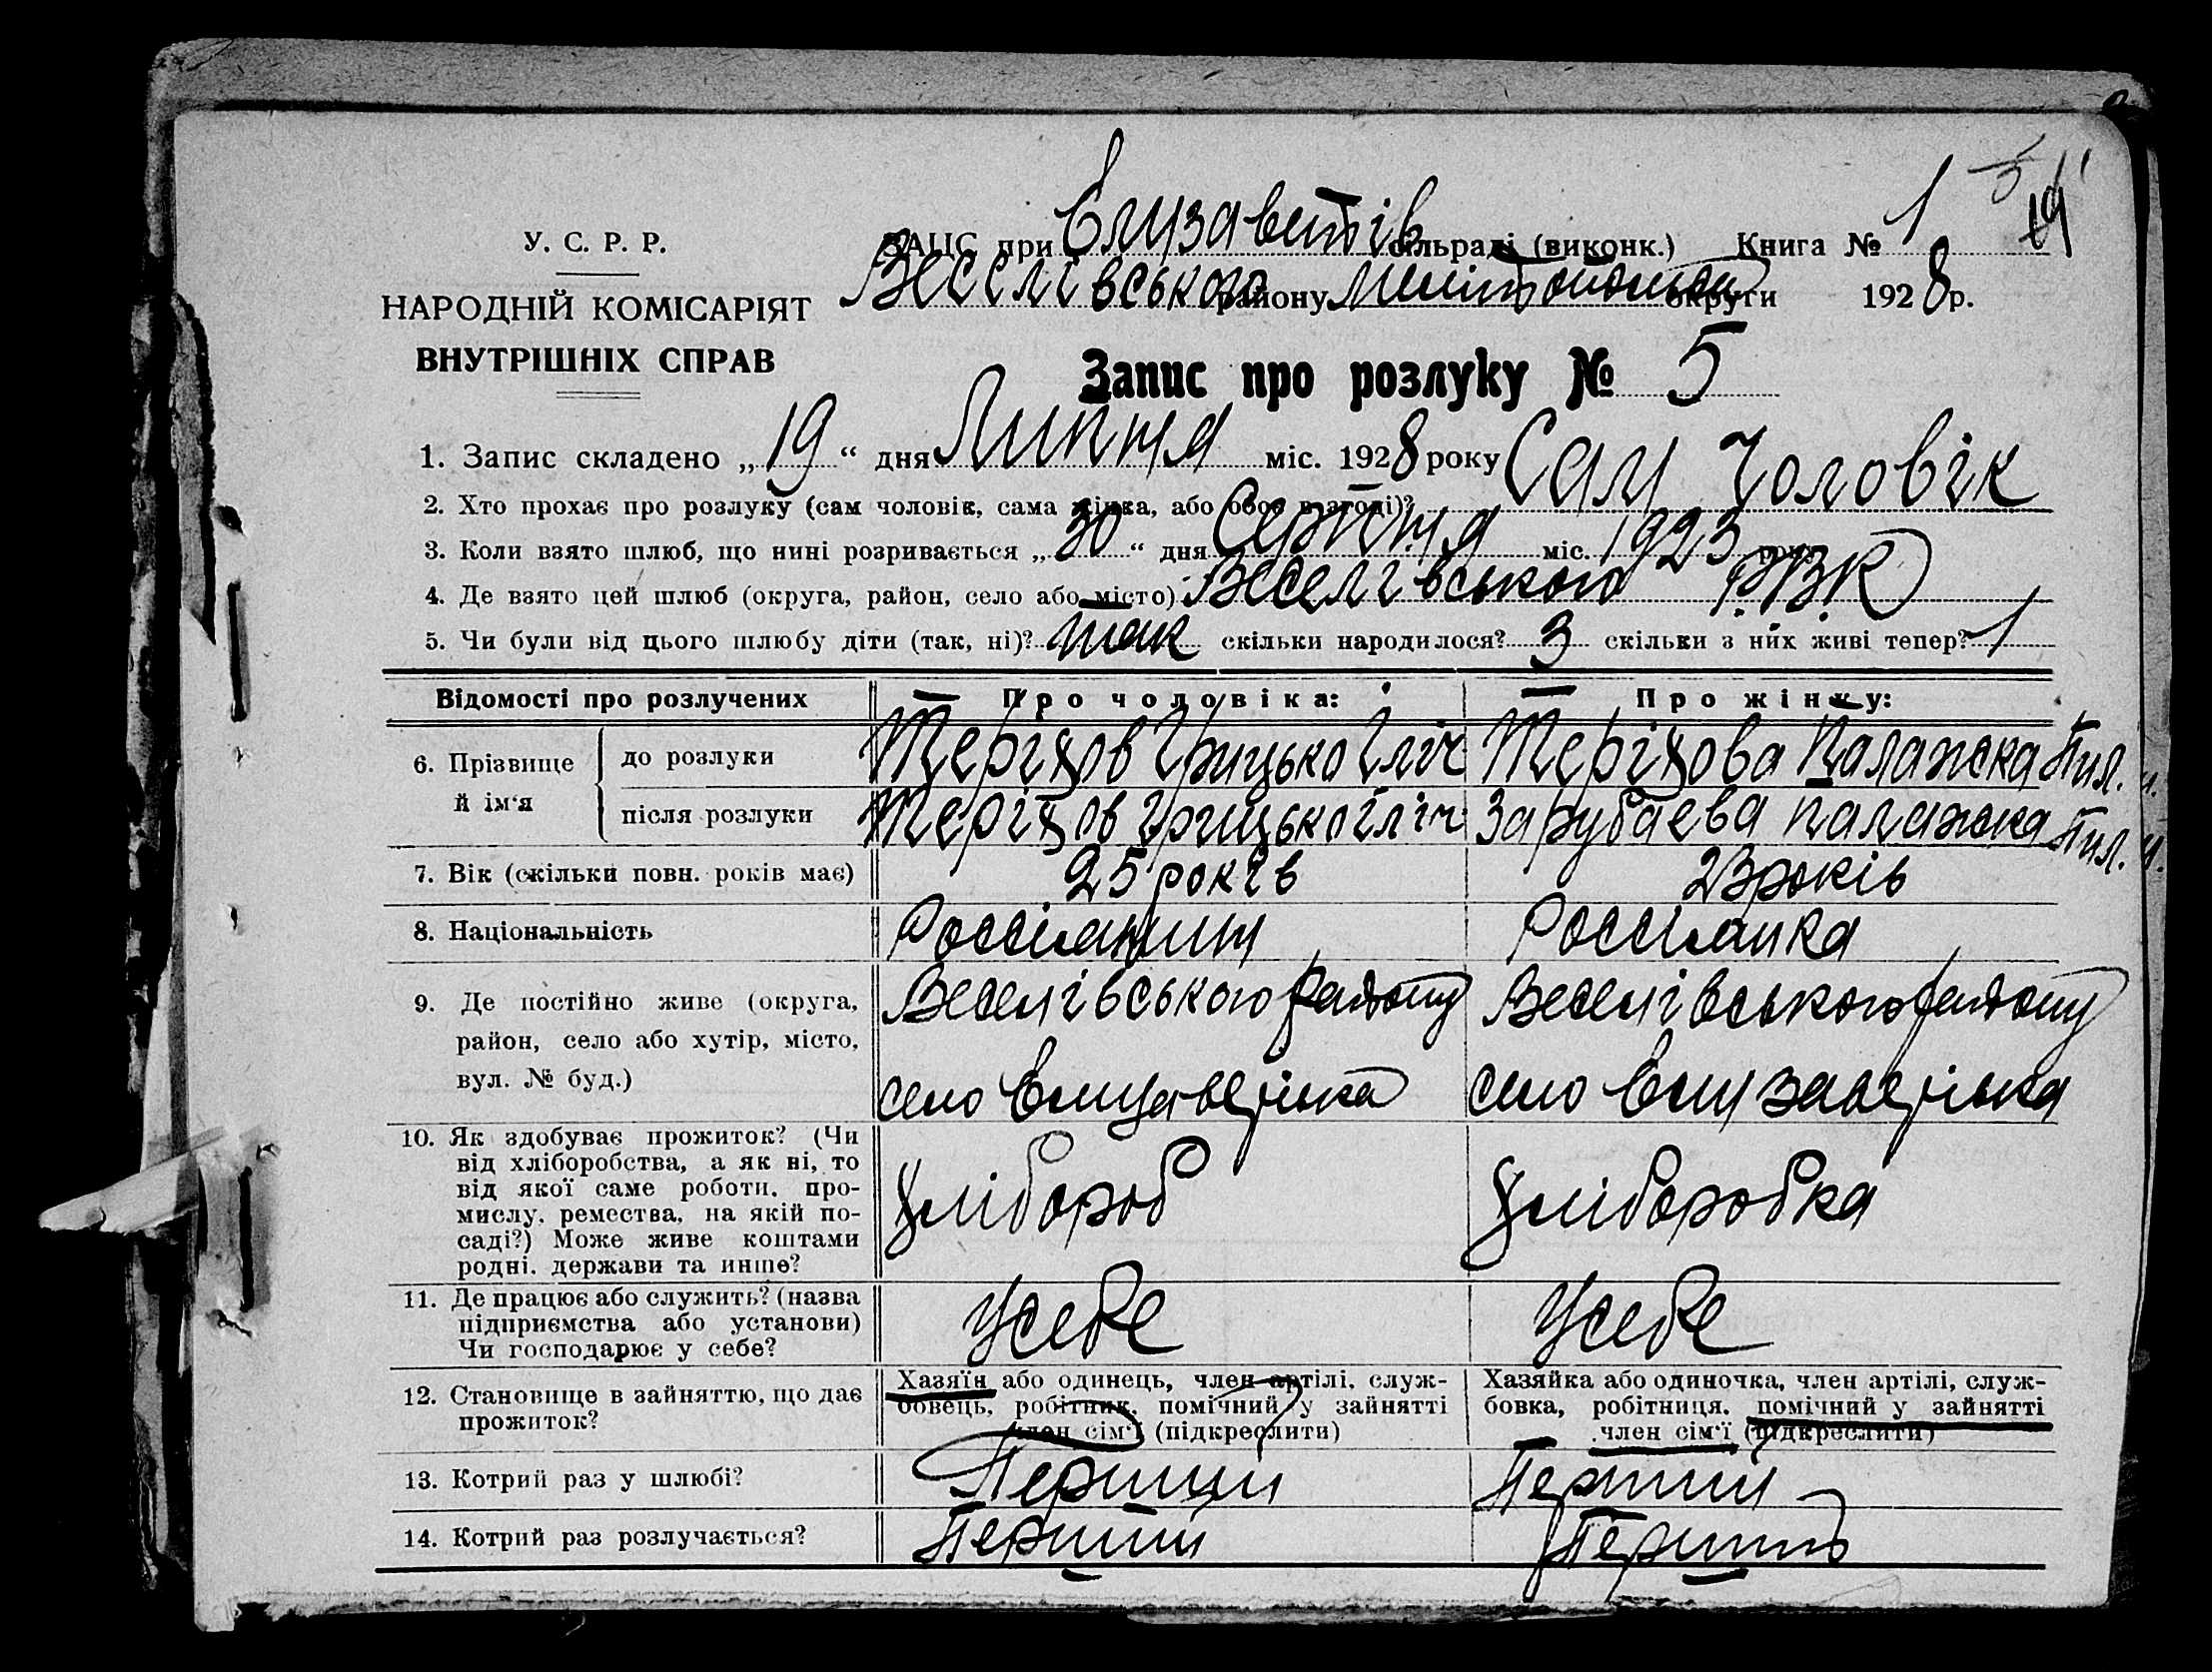 У. С. Р. Р.
НАРОДНІЙ КОМІСАРІЯТ
ВНУТРІШНІХ СПРАВ
ЗАЦС при Єлизаветів сільраді (виконк.) Книга № 1
Веселівського району округи 1928 р.
Запис про розлуку № 5
1. Запис складено „19“ дня Липця міс. 1928 року
2. Хто прохає про розлуку (сам чоловік, сама жінка, або обоє в згоді)? Сам Чоловік
3. Коли взято шлюб, що нині розривається „30“ дня Серпця міс. 1923 року
4. Де взято цей шлюб (округа, район, село або місто) Веселівського РВК
5. Чи були від цього шлюбу діти (так, ні)? так скільки народилося? 3 скільки з них живі тепер? 1
Відомості про розлучених Про чоловіка: Про жінку:
6. Прізвище й ім'я
до розлуки Терїхов Грицько Ілїч Терїхова Палажка Пил.
після розлуки Терїхов Грицько Ілїч Зарубаева Палажка Пил.
7. Вік (скільки повн. років має) 25 років 23 років
8. Національність Россіянин Россіянка
9. Де постійно живе (округа, район, село або хутір, місто, вул. № буд.)
Веселівського району Веселівського району
село село
10. Як здобуває прожиток? (Чи
від хліборобства, а як ні, то
від якої саме роботи, про-
мислу, ремества, на якій по-
саді?) Може живе коштами
родні, держави та инше?
Хлібороб Хліборобка
11. Де працює або служить? (назва
підприємства або установи)
Чи господарює у себе?
У себе У себе
12. Становище в зайняттю, що дає
прожиток?
Хазяїн або одинець, член артілі, служ-
бовець, робітник, помічний у зайнятті
член сім'ї (підкреслити)
Хазяйка або одиночка, член артілі, служ-
бовка, робітниця, помічний у зайнятті
член сім'ї (підкреслити)
13. Котрий раз у шлюбі? Перший Перший
14. Котрий раз розлучається? Перший